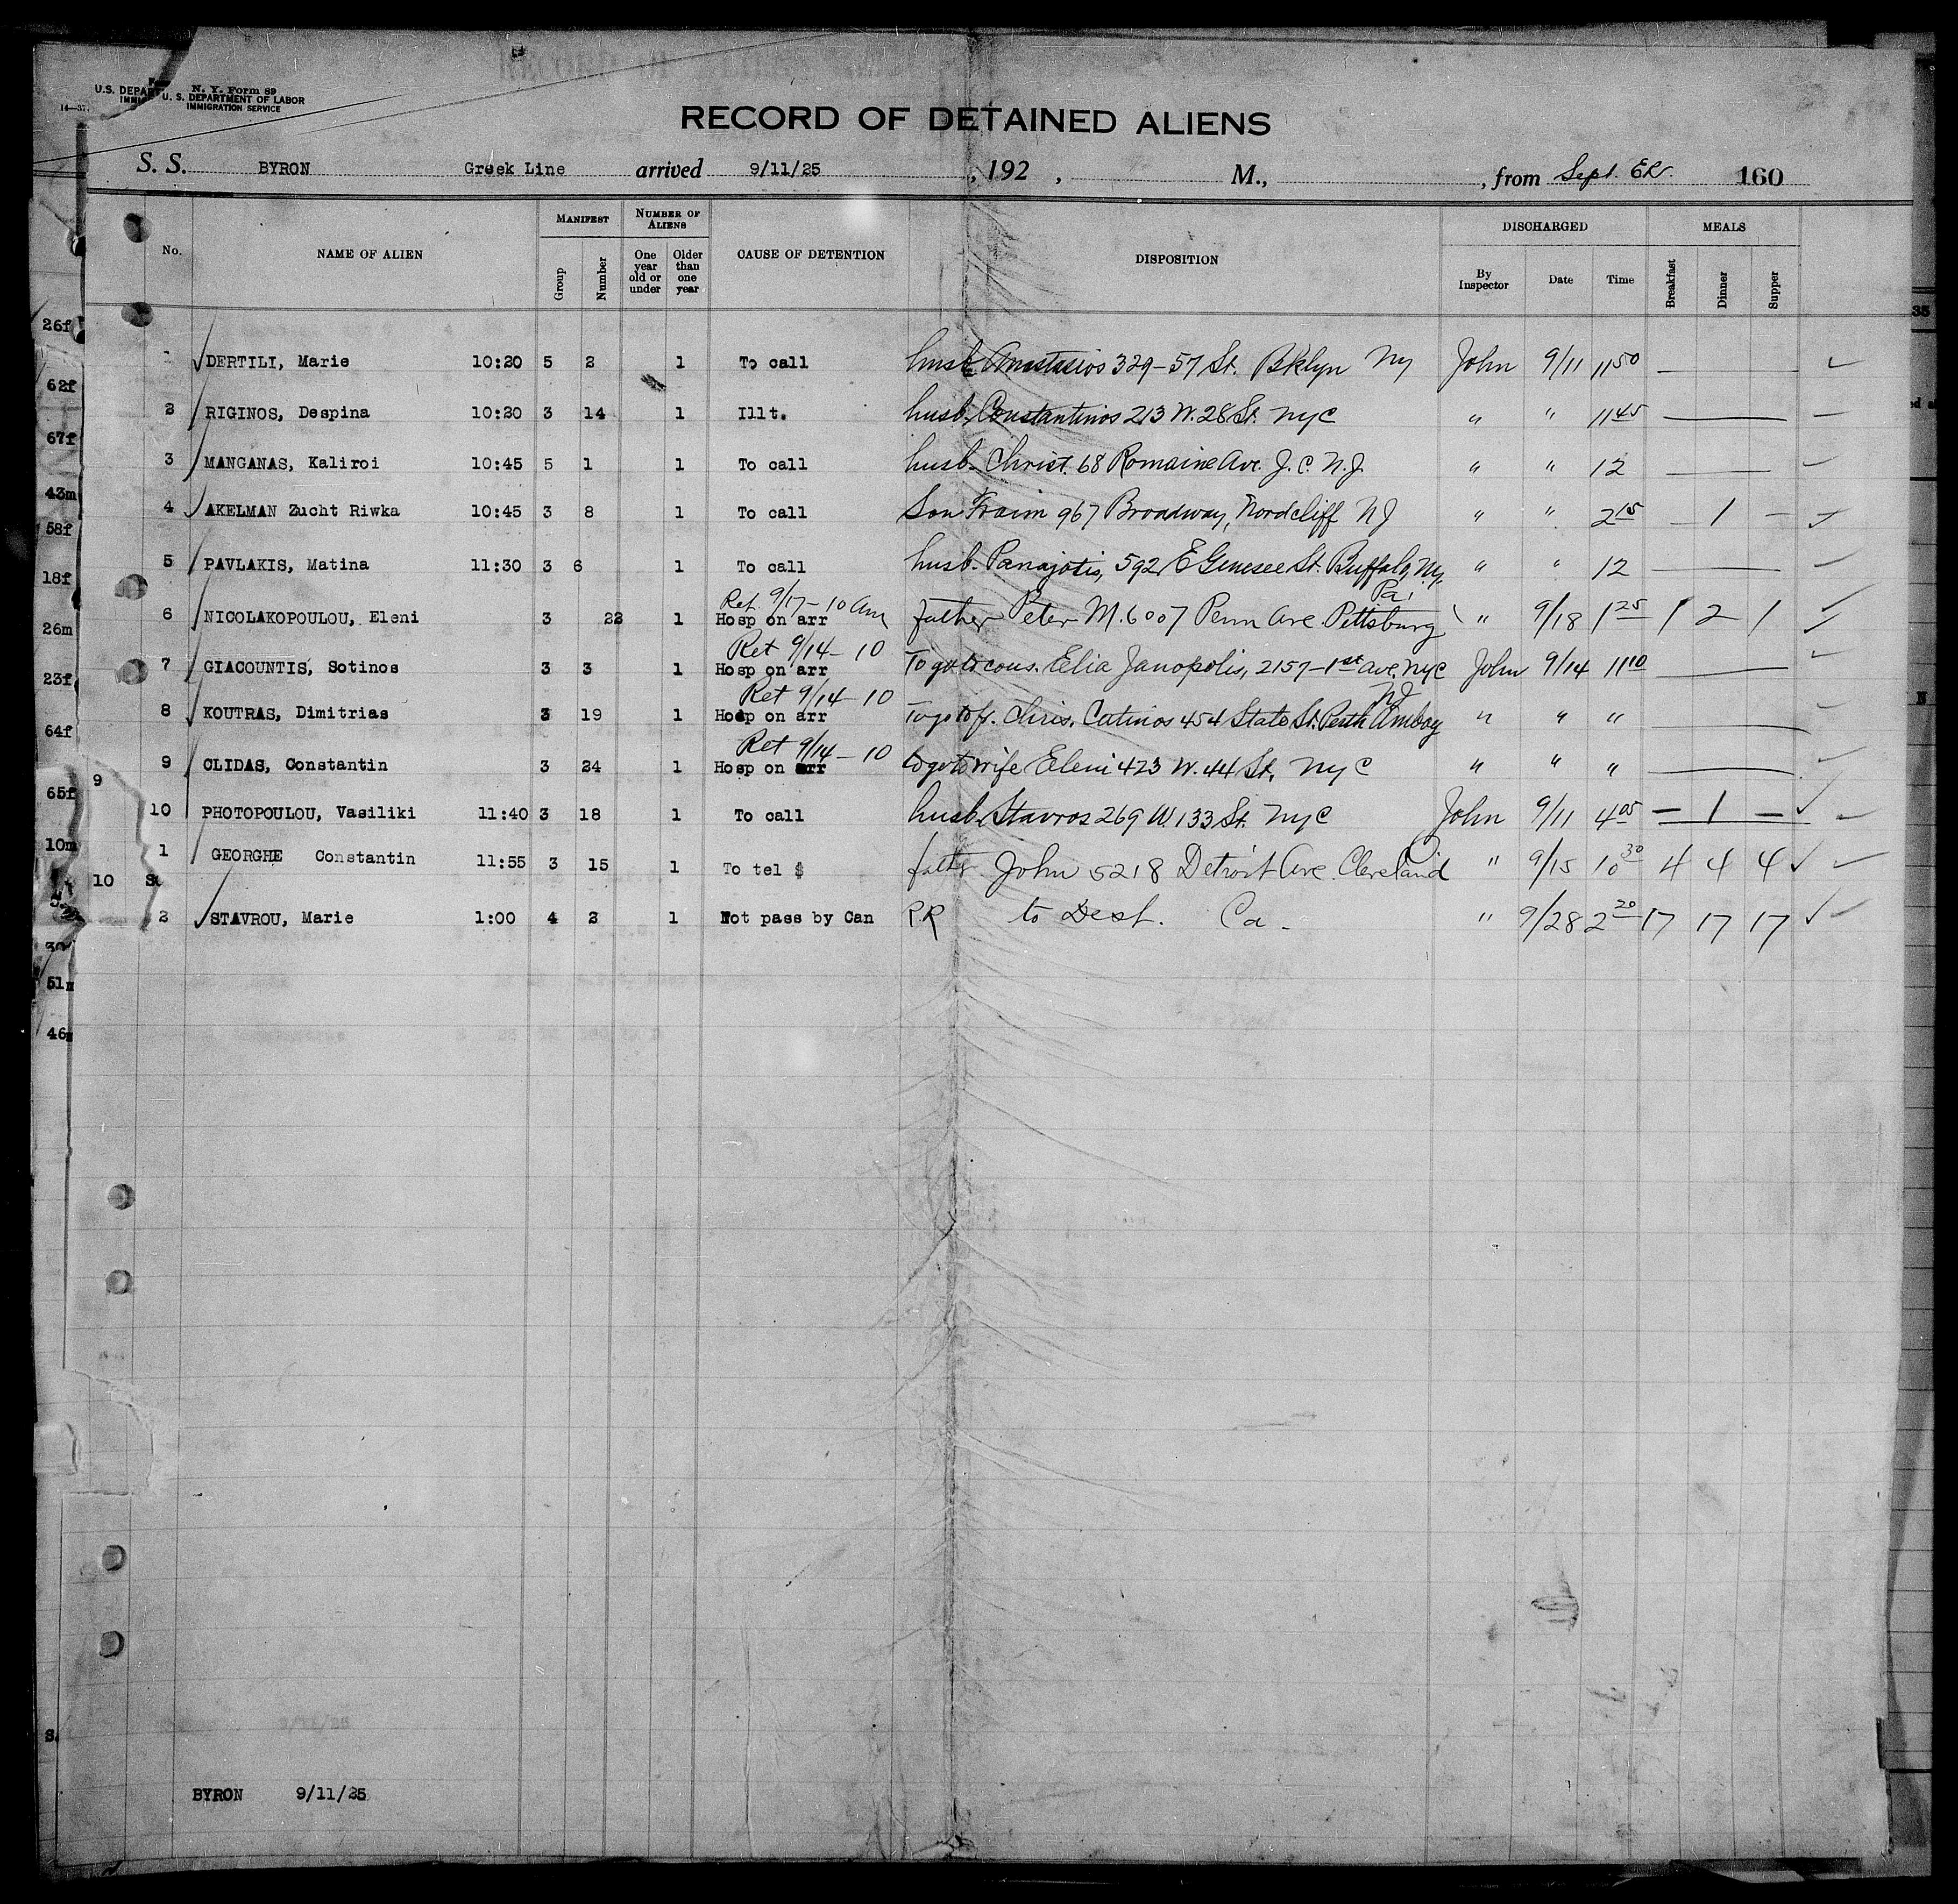 U.S. DEPAR
IMMI
N. Y. Form 89
U. S. DEPARTMENT OF LABOR
IMMIGRATION SERVICE
RECORD OF DETAINED ALIENS
S. S. BYRON Greek Line arrived 9/11/25, 192 , M., from Sept. 160
No. NAME OF ALIEN MANIFEST Group Number NUMBER OF ALIENS One year old or under Older than one year CAUSE OF DETENTION DISPOSITION DISCHARGED By Inspector Date Time MEALS Breakfast Dinner Supper
DERTILI, Marie 10:20 5 2 1 To call husb Anastasios 329-57 St. Bklyn Ny John 9/11 11 50
2 RIGINOS, Despina 10:20 3 14 1 Illt. husb. Constantinos 213 W. 28 St. NyC " " 11 45
3 MANGANAS, Kaliroi 10:45 5 1 1 To call husb. Christ. 68 Romaine Ave. J. C. N.J. " " 12
4 AKELMAN Zucht Riwka 10:45 3 8 1 To call Son Fraim 967 Broadway, Nordcliff NJ " " 2 15 — 1 —
5 PAVLAKIS, Matina 11:30 3 6 1 To call husb. Panajotis, 592 E Genesee St. Buffalo, Ny. " " 12
Ret. 9/17-10 am Pa.
6 NICOLAKOPOULOU, Eleni 3 22 1 Hosp on arr father Peter M. 6007 Penn Ave. Pittsburg " 9/18 1 25 1 2 1
Ret 9/14-10
7 GIACOUNTIS, Sotinos 3 3 1 Hosp on arr To go to cous. Elia Janopolis, 2157-1st ave. NyC John 9/14 11 10
Ret 9/14-10 NJ
8 KOUTRAS, Dimitrias 3 19 1 Hosp on arr To go to fr. Chris. Cutinos 454 State St. Perth Amboy " " "
Ret 9/14-10
9 CLIDAS, Constantin 3 24 1 Hosp on arr to go to wife Eleni 423 W. 44 St, NyC " " "
10 PHOTOPOULOU, Vasiliki 11:40 3 18 1 To call husb. Stavros 269 W. 133 St. NyC John 9/11 4 05 — 1 —
1 GEORGHE Constantin 11:55 3 15 1 To tel $ fathr John 5218 Detroit Ave. Cleveland O " 9/15 10 30 4 4 4
2 STAVROU, Marie 1:00 4 2 1 Not pass by Can RR to Dest. Ca. " 9/28 2 20 17 17 17
26f
62f
67f
43m
58f
18f
26m
23f
64f
9
65f
10m
10 St
30
51m
46m
35
N
S.
BYRON 9/11/25